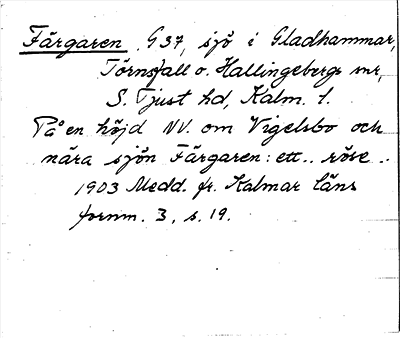 Färgaren G37, sjö i Gladhammar,
Törnsfall o. Hallingebergs snr,
S. Tjust hd, Kalm. l.
På en höjd NV. om Vigelsbo och
nära sjön Färgaren: ett .. röse ..
1903 Medd. fr. Kalmar läns
fornm. 3, s. 19.